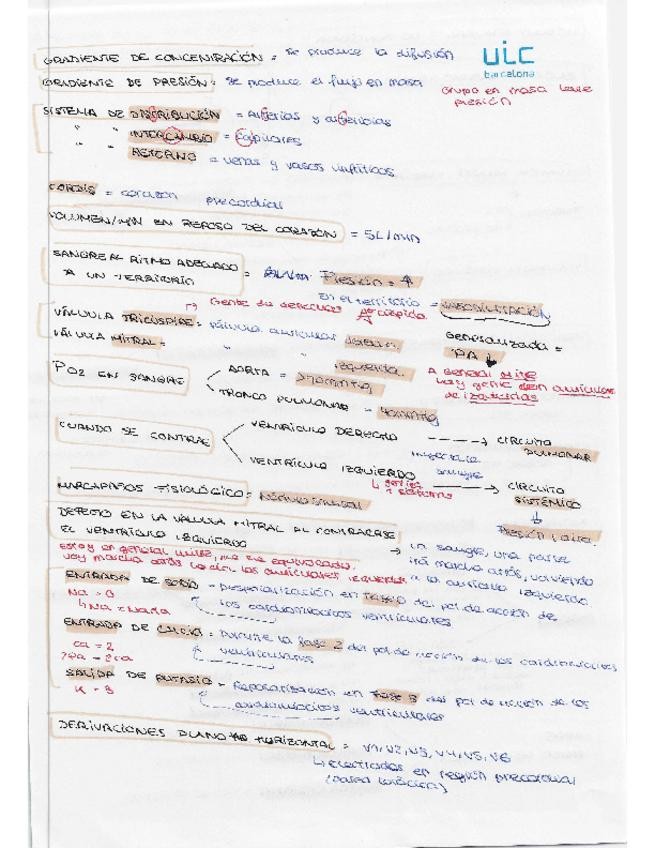 GRADIENTE DE CONCENTRACIÓN = Se produce la difusión
uic
barcelona
GRADIENTE DE PRESIÓN = Se produce el flujo en masa
Grupo en masa
presión
SISTEMA DE DISTRIBUCIÓN = Arterias y arteriolas
" " INTERCAMBIO = Capilares
" " RETORNO = venas y vasos linfáticos
CORDIS = corazón precordial
VOLUMEN/MIN EN REPOSO DEL CORAZÓN = 5L/min
SANGRE AL RITMO ADECUADO
A UN TERRITORIO = Presión = ↑
En el territorio = VASODILATACIÓN
Gente de derechas
VÁLVULA TRICÚSPIDE = Válvula auricular
Generalizada =
PA ↓
VÁLVULA MITRAL = " " izquierda.
A General Mitre
hay gente
de izquierdas
PO2 EN SANGRE
AORTA =
TRONCO PULMONAR = 40mmHg
CUANDO SE CONTRAE
VENTRÍCULO DERECHO → CIRCUITO
PULMONAR
VENTRÍCULO IZQUIERDO → CIRCUITO
SISTÉMICO
MARCAPASOS FISIOLÓGICO =
DEFECTO EN LA VÁLVULA MITRAL AL CONTRAERSE
EL VENTRÍCULO IZQUIERDO → La sangre, una parte
irá marcha atrás, volviendo
a la aurícula izquierda
estoy en general mitre, me he equivocado,
voy marcha atrás
ENTRADA DE SODIO = Despolarización en fase 0 del pot de acción de
los cardiomiocitos ventriculares
Na = 0
ENTRADA DE CALCIO = Durante la fase 2 del pot de acción de los cardiomiocitos
ventriculares
Ca = 2
SALIDA DE POTASIO = Repolarización en fase 3 del pot de acción de los
cardiomiocitos ventriculares
K = 3
DERIVACIONES PLANO HORIZONTAL = V1, V2, V3, V4, V5, V6
↳ electrodos en región precordial